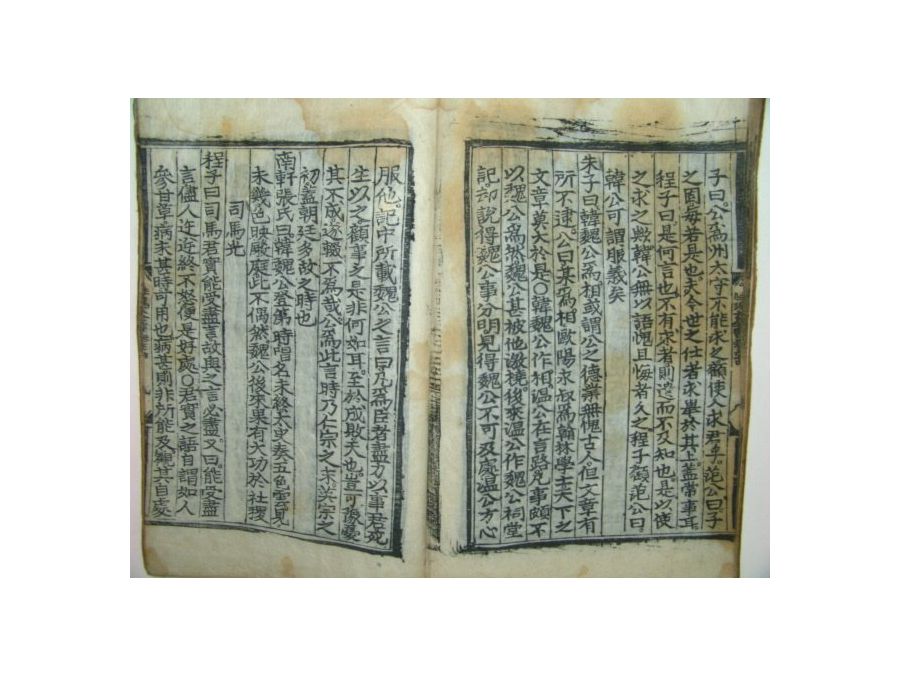 子曰公爲州太守不能求之顧使人求君乎范公曰子
之固每若是也夫今世之仕者求擧於其上蓋常事耳
程子曰是何言也不有求者則遺而不及知也是以使
之求之歟韓公無以語愧且悔者久之程子顧范公曰
韓公可謂服義矣
朱子曰韓魏公爲相或謂公之德業無愧古人但文章有
所不逮公曰某爲相歐陽永叔爲翰林學士天下之
文章莫大於是○韓魏公作相温公在言路凡事頗不
以魏公爲然魏公甚被他激撓後來温公作魏公祠堂
記却說得魏公事分明見得魏公不可及處温公方心
服他記中所載魏公之言曰凡爲臣者盡力以事君死
生以之顧事之是非何如耳至於成敗天也豈可豫憂
其不成遂輟不爲哉公爲此言時乃仁宗之末英宗之
初蓋朝廷多故之時也
南軒張氏曰韓魏公登第時唱名未終太史奏五色雲見
未幾色映殿庭此不偶然魏公後來果有大功於社稷
司馬光
程子曰司馬君實能受盡言故與之言必盡又曰能受盡
言儘人迕逆終不怒便是好處○君實之語自謂如人
參甘草病未甚時可用也病甚則非所能及觀其自處